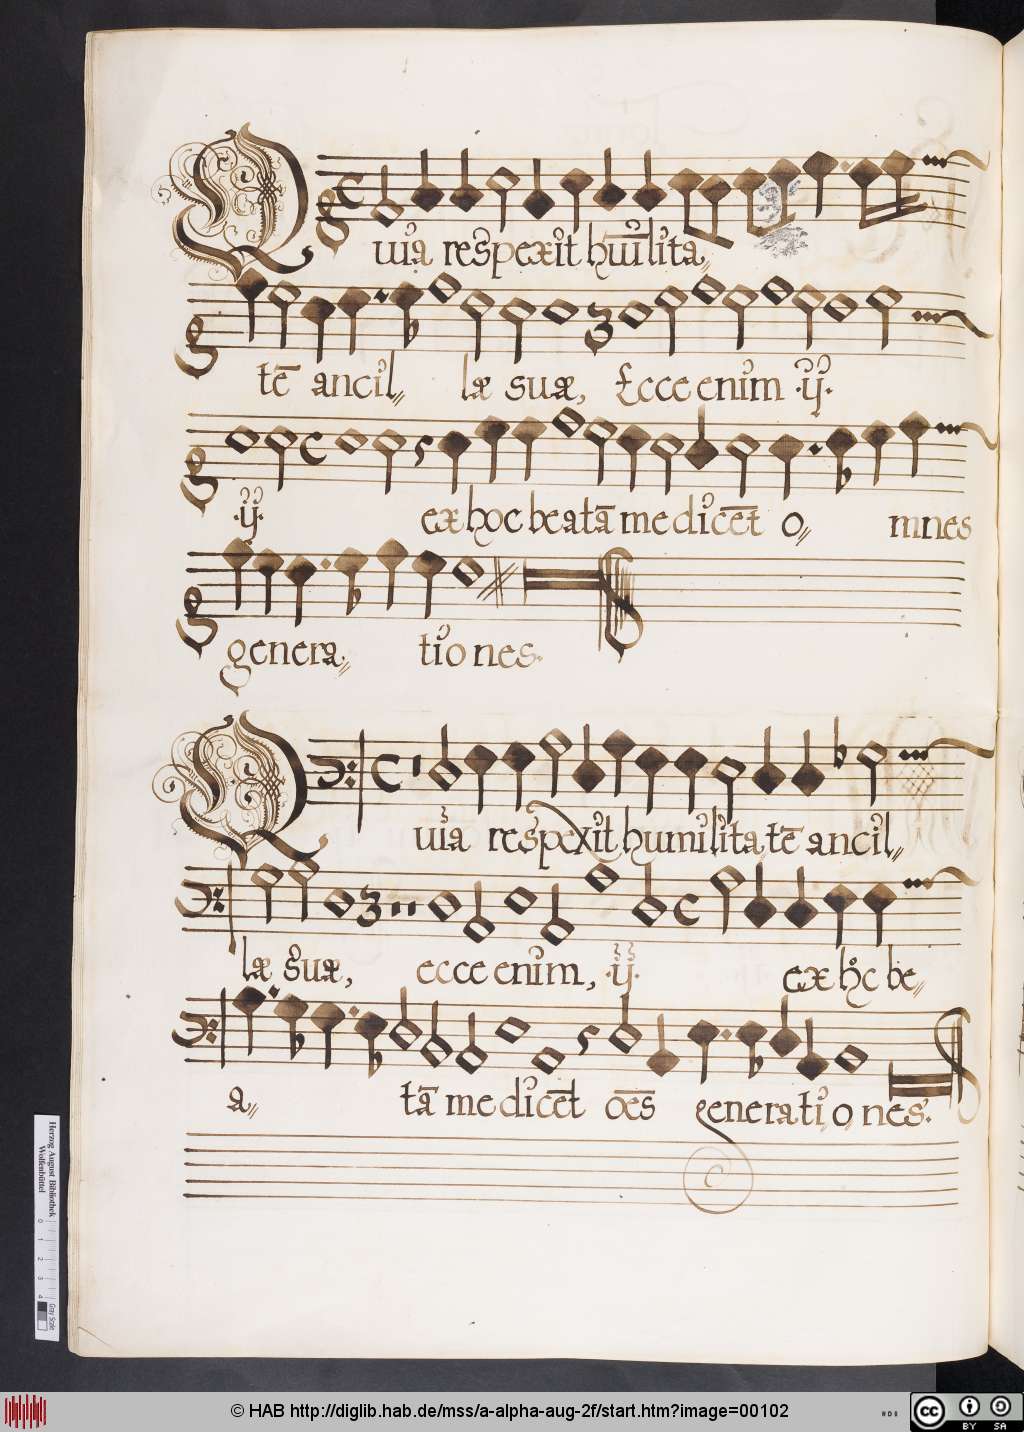 Quia respexit hūilita
tē ancil læ suæ, Ecce enim ·ÿ·
·ÿ· ex hoc beatā me dicēt o, mnes
genera, tiones.
Quia respexit humilitatē ancil
læ suæ, ecce enim, ·ÿ· ex hoc be
a tā me dicēt oēs generationes.
Herzog August Bibliothek
Wolfenbüttel
0 1 2 3 4
Gray Scale
© HAB http://diglib.hab.de/mss/a-alpha-aug-2f/start.htm?image=00102
cc BY SA